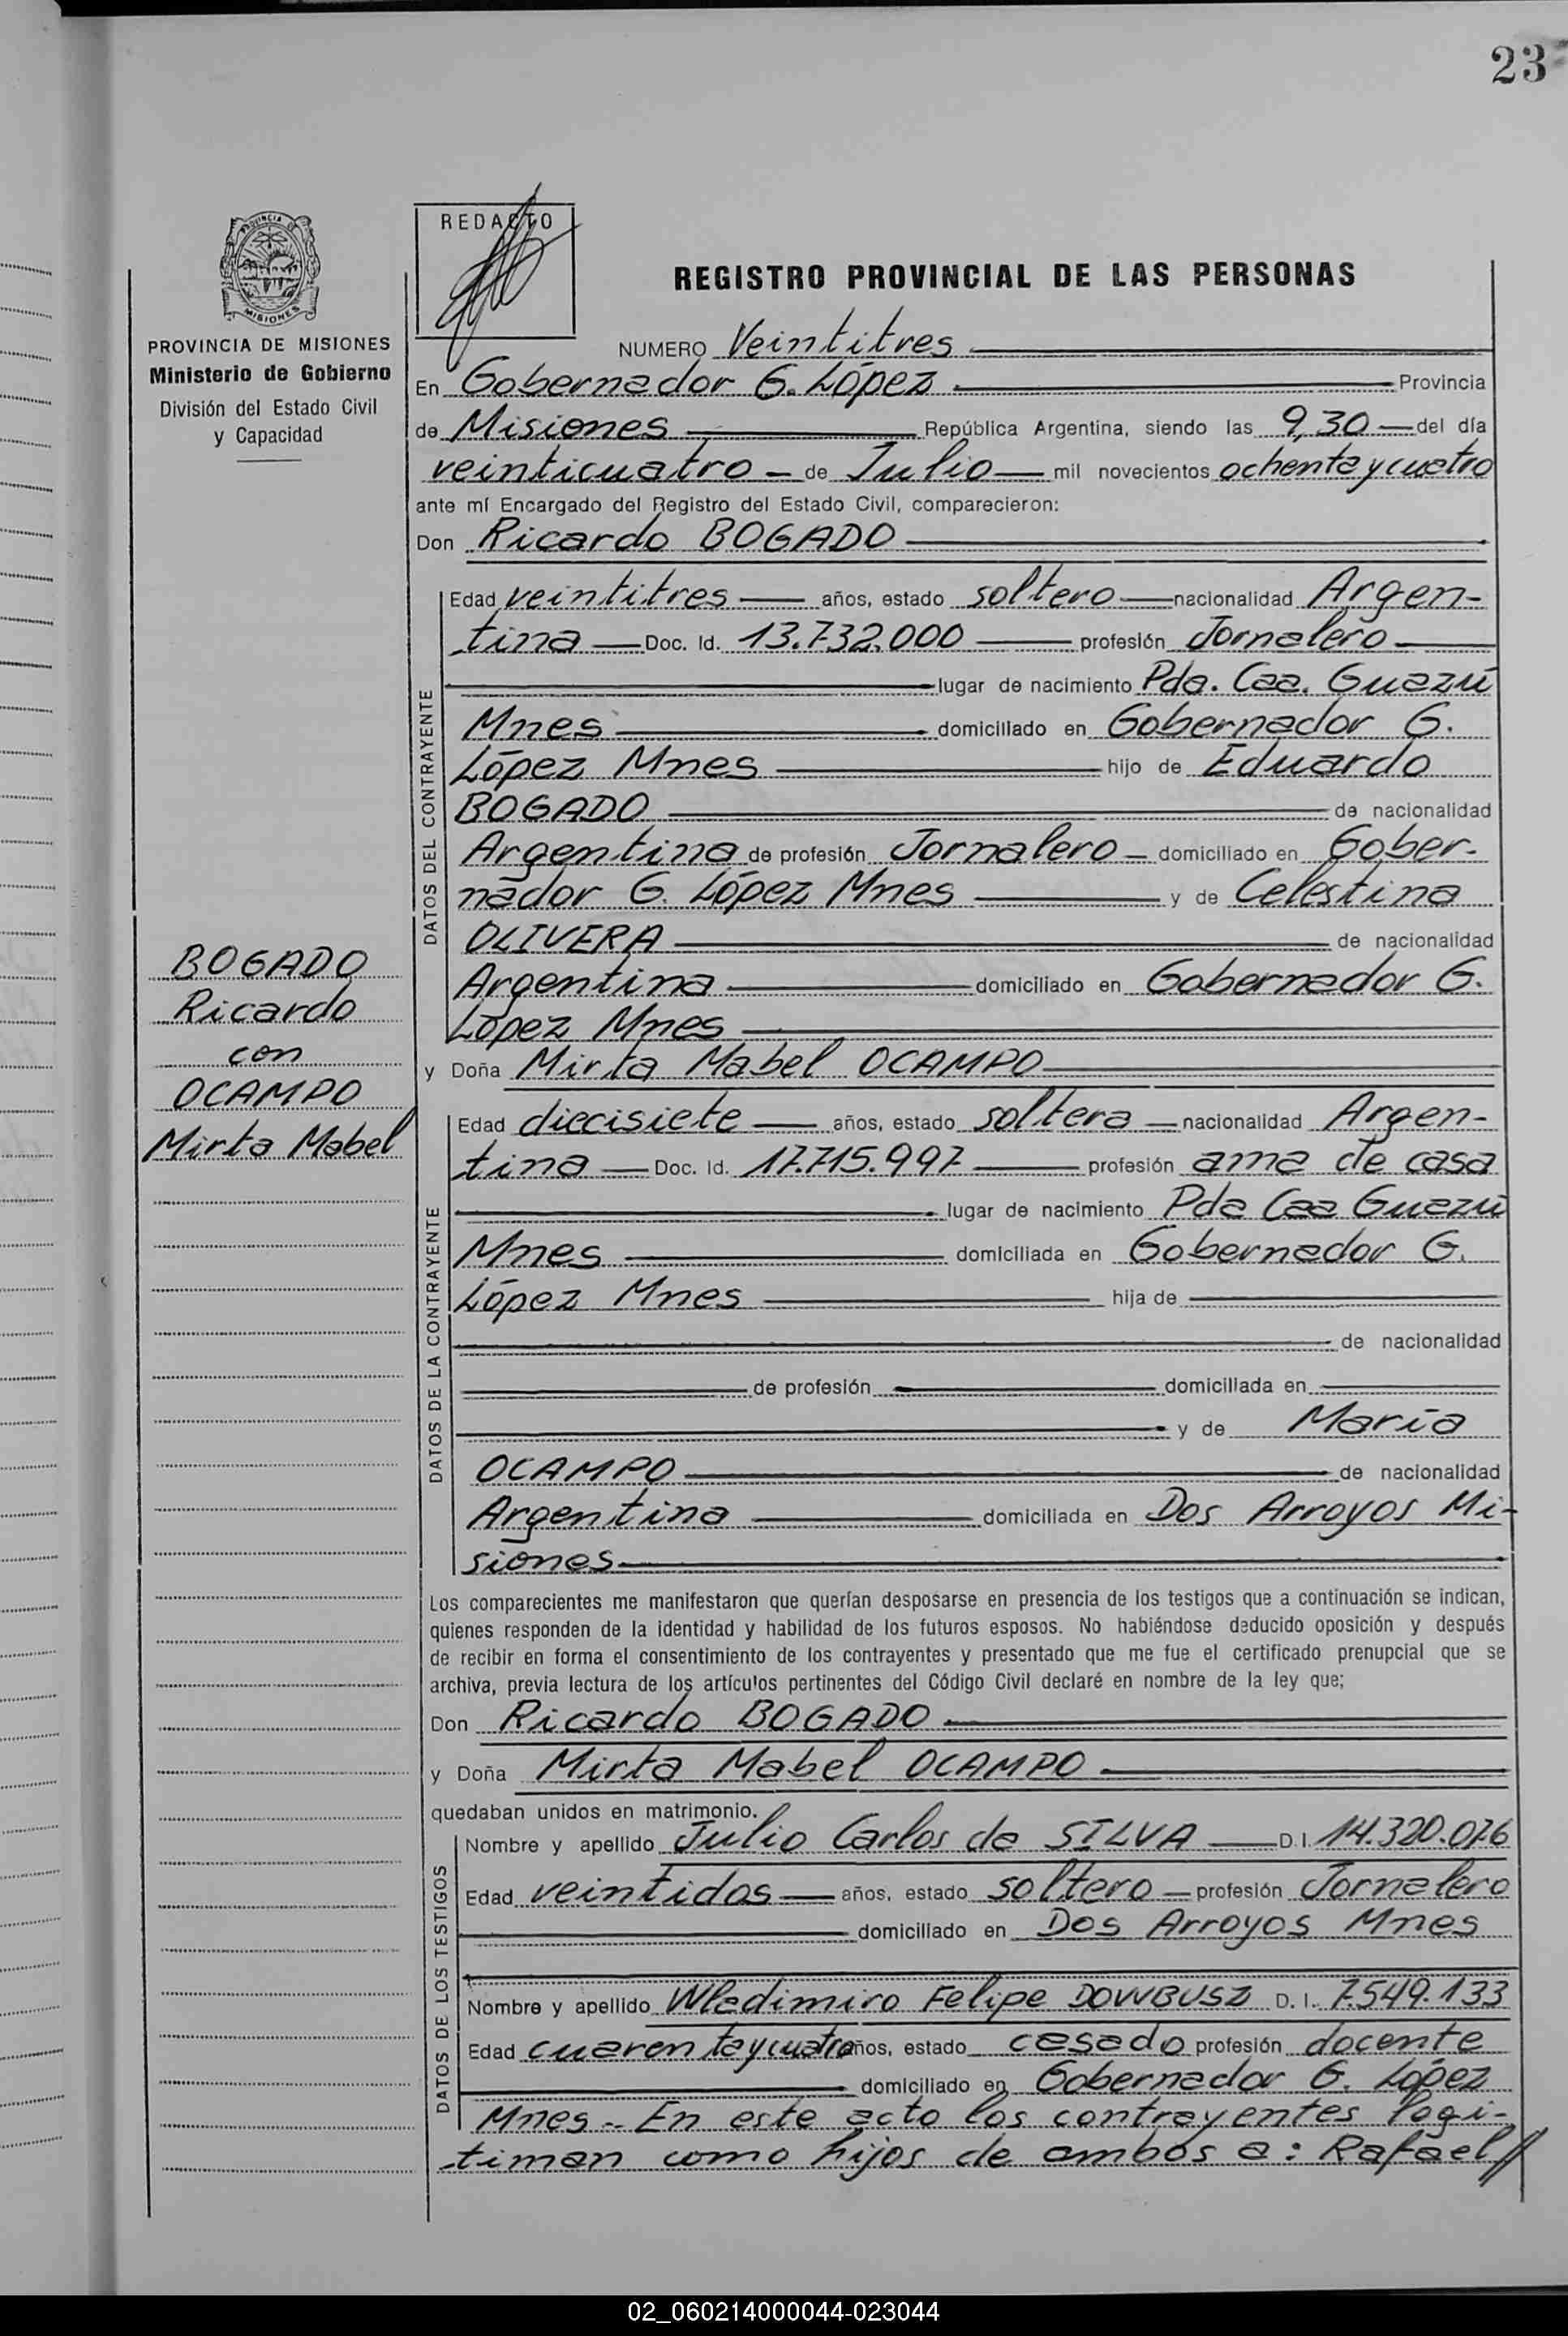 23
REDACTO
PROVINCIA DE
MISIONES
REGISTRO PROVINCIAL DE LAS PERSONAS
PROVINCIA DE MISIONES
Ministerio de Gobierno
División del Estado Civil
y Capacidad
NUMERO Veintitres
En Gobernador G. López Provincia
de Misiones República Argentina, siendo las 9,30 del día
veinticuatro de Julio mil novecientos ochenta y cuatro
ante mí Encargado del Registro del Estado Civil, comparecieron:
Don Ricardo BOGADO
DATOS DEL CONTRAYENTE
Edad veintitres años, estado soltero nacionalidad Argen-
tina Doc. Id. 13.732.000 profesión Jornalero
lugar de nacimiento Pda. Caa. Guazú
Mnes domiciliado en Gobernador G.
López Mnes hijo de Eduardo
BOGADO de nacionalidad
Argentina de profesión Jornalero domiciliado en Gober-
nador G. López Mnes y de Celestina
OLIVERA de nacionalidad
Argentina domiciliado en Gobernador G.
López Mnes
BOGADO
Ricardo
con
OCAMPO
Mirta Mabel
y Doña Mirta Mabel OCAMPO
DATOS DE LA CONTRAYENTE
Edad diecisiete años, estado soltera nacionalidad Argen-
tina Doc. Id. 17.715.997 profesión ama de casa
lugar de nacimiento Pda Caa Guazú
Mnes domiciliada en Gobernador G.
López Mnes hija de
de nacionalidad
de profesión domiciliada en
y de María
OCAMPO de nacionalidad
Argentina domiciliada en Dos Arroyos Mi-
siones
Los comparecientes me manifestaron que querían desposarse en presencia de los testigos que a continuación se indican,
quienes responden de la identidad y habilidad de los futuros esposos. No habiéndose deducido oposición y después
de recibir en forma el consentimiento de los contrayentes y presentado que me fue el certificado prenupcial que se
archiva, previa lectura de los artículos pertinentes del Código Civil declaré en nombre de la ley que;
Don Ricardo BOGADO
y Doña Mirta Mabel OCAMPO
quedaban unidos en matrimonio.
DATOS DE LOS TESTIGOS
Nombre y apellido Julio Carlos da SILVA D.I. 14.320.076
Edad veintidos años, estado soltero profesión Jornalero
domiciliado en Dos Arroyos Mnes
Nombre y apellido Wladimiro Felipe DOWBUSZ D. I. 7.549.133
Edad cuarenta y cuatro años, estado casado profesión docente
domiciliado en Gobernador G. López
Mnes.- En este acto los contrayentes legi-
timan como hijos de ambos a: Rafael//
02_060214000044-023044